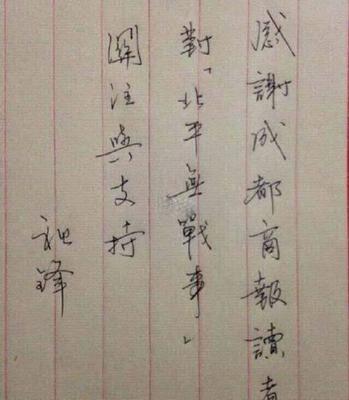 感謝成都商報讀者
對「北平無戰事」
關注與支持
和鋒